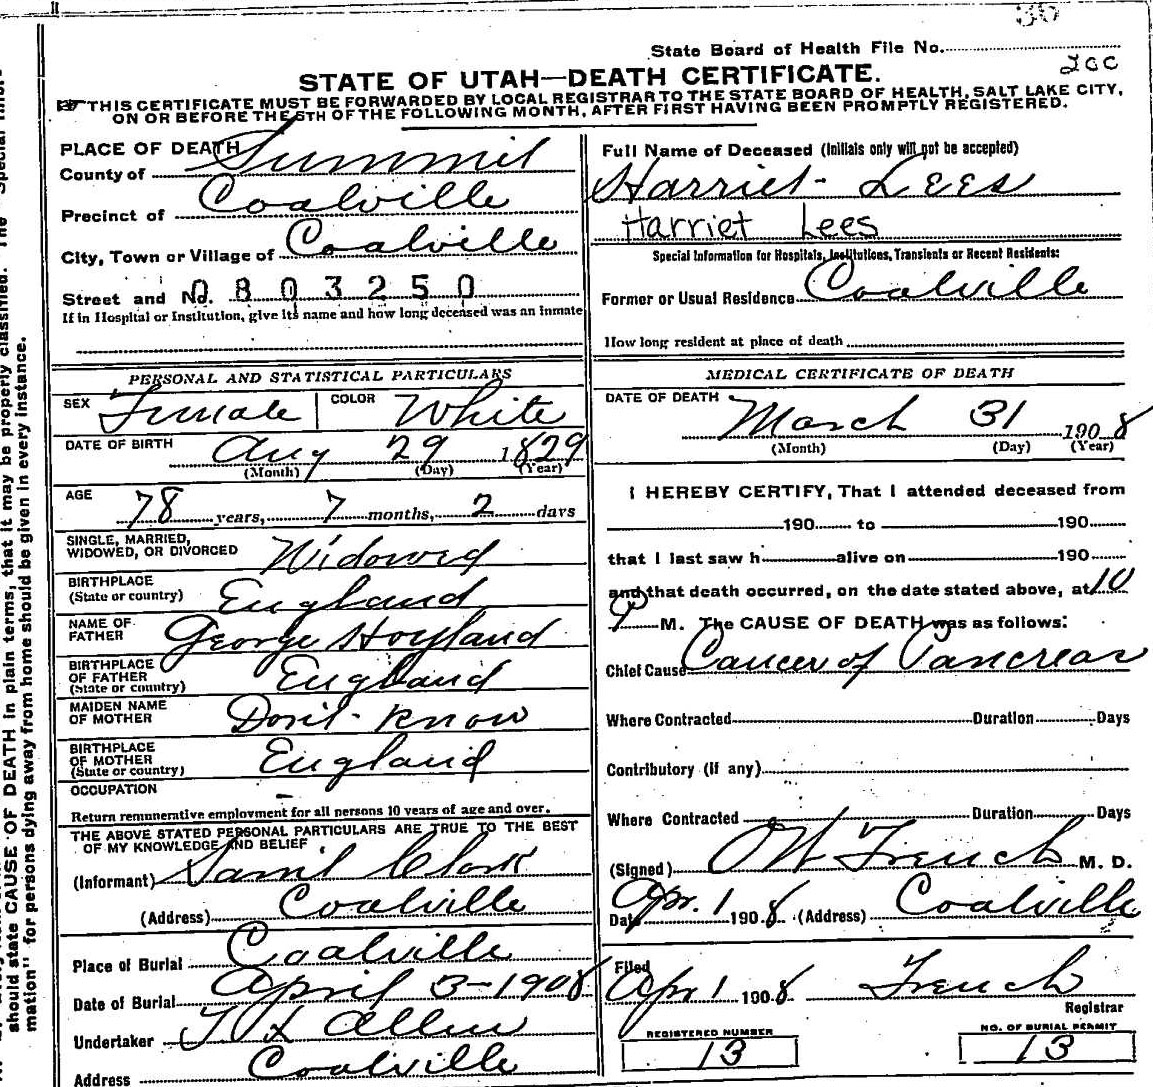 30
State Board of Health File No.
2cc
STATE OF UTAH—DEATH CERTIFICATE.
THIS CERTIFICATE MUST BE FORWARDED BY LOCAL REGISTRAR TO THE STATE BOARD OF HEALTH, SALT LAKE CITY,
ON OR BEFORE THE 5TH OF THE FOLLOWING MONTH, AFTER FIRST HAVING BEEN PROMPTLY REGISTERED.
PLACE OF DEATH
County of Summit
Precinct of Coalville
City, Town or Village of Coalville
Street and No. 0803250
If in Hospital or Institution, give its name and how long deceased was an inmate
Full Name of Deceased (Initials only will not be accepted)
Harriet Lees
Harriet Lees
Special Information for Hospitals, Institutions, Transients or Recent Residents:
Former or Usual Residence Coalville
How long resident at place of death
PERSONAL AND STATISTICAL PARTICULARS
SEX Female COLOR White
DATE OF BIRTH Aug 29 1829
(Month) (Day) (Year)
AGE
78 years, 7 months, 2 days
SINGLE, MARRIED,
WIDOWED, OR DIVORCED Widowed
BIRTHPLACE
(State or country) England
NAME OF
FATHER George Hoyland
BIRTHPLACE
OF FATHER
(State or country) England
MAIDEN NAME
OF MOTHER Don't know
BIRTHPLACE
OF MOTHER
(State or country) England
OCCUPATION –
Return remunerative employment for all persons 10 years of age and over.
THE ABOVE STATED PERSONAL PARTICULARS ARE TRUE TO THE BEST
OF MY KNOWLEDGE AND BELIEF
(Informant) Saml Clark
(Address) Coalville
Place of Burial Coalville
Date of Burial April 3-1908
Undertaker Allen
Address Coalville
MEDICAL CERTIFICATE OF DEATH
DATE OF DEATH
March 31 1908
(Month) (Day) (Year)
I HEREBY CERTIFY, That I attended deceased from
190 to 190
that I last saw h alive on 190
and that death occurred, on the date stated above, at 10
P M. The CAUSE OF DEATH was as follows:
Chief Cause Cancer of Pancreas
Where Contracted Duration Days
Contributory (if any)
Where Contracted Duration Days
(Signed) French M. D.
Date Apr. 1 1908 (Address) Coalville
Filed
Apr 1 1908 French
Registrar
REGISTERED NUMBER
13
NO. OF BURIAL PERMIT
13
should state CAUSE OF DEATH in plain terms, that it may be properly classified. The "Special Infor-
mation" for persons dying away from home should be given in every instance.